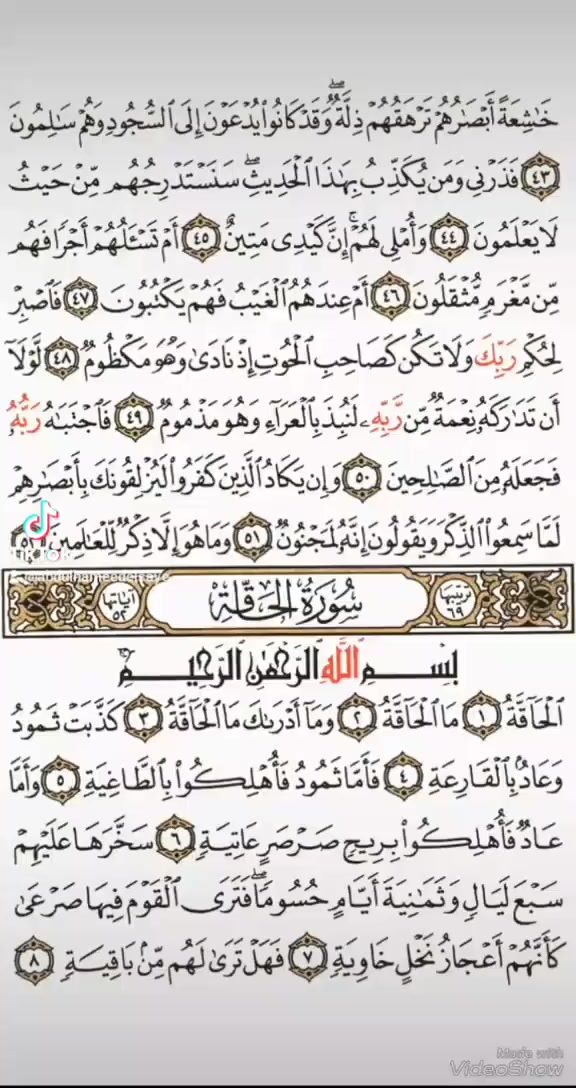 خَٰشِعَةً أَبْصَٰرُهُمْ تَرْهَقُهُمْ ذِلَّةٌ ۖ وَقَدْ كَانُوا۟ يُدْعَوْنَ إِلَى ٱلسُّجُودِ وَهُمْ سَٰلِمُونَ
٤٣ فَذَرْنِى وَمَن يُكَذِّبُ بِهَٰذَا ٱلْحَدِيثِ ۖ سَنَسْتَدْرِجُهُم مِّنْ حَيْثُ
لَا يَعْلَمُونَ ٤٤ وَأُمْلِى لَهُمْ ۚ إِنَّ كَيْدِى مَتِينٌ ٤٥ أَمْ تَسْـَٔلُهُمْ أَجْرًا فَهُم
مِّن مَّغْرَمٍ مُّثْقَلُونَ ٤٦ أَمْ عِندَهُمُ ٱلْغَيْبُ فَهُمْ يَكْتُبُونَ ٤٧ فَٱصْبِرْ
لِحُكْمِ رَبِّكَ وَلَا تَكُن كَصَاحِبِ ٱلْحُوتِ إِذْ نَادَىٰ وَهُوَ مَكْظُومٌ ٤٨ لَّوْلَآ
أَن تَدَٰرَكَهُۥ نِعْمَةٌ مِّن رَّبِّهِۦ لَنُبِذَ بِٱلْعَرَآءِ وَهُوَ مَذْمُومٌ ٤٩ فَٱجْتَبَٰهُ رَبُّهُۥ
فَجَعَلَهُۥ مِنَ ٱلصَّٰلِحِينَ ٥٠ وَإِن يَكَادُ ٱلَّذِينَ كَفَرُوا۟ لَيُزْلِقُونَكَ بِأَبْصَٰرِهِمْ
لَمَّا سَمِعُوا۟ ٱلذِّكْرَ وَيَقُولُونَ إِنَّهُۥ لَمَجْنُونٌ ٥١ وَمَا هُوَ إِلَّا ذِكْرٌ لِّلْعَٰلَمِينَ ٥٢
TikTok
ترتيبها ٦٩ سُورَةُ الْحَاقَّةِ آياتها ٥٢
بِسْمِ ٱللَّهِ ٱلرَّحْمَٰنِ ٱلرَّحِيمِ
ٱلْحَآقَّةُ ١ مَا ٱلْحَآقَّةُ ٢ وَمَآ أَدْرَىٰكَ مَا ٱلْحَآقَّةُ ٣ كَذَّبَتْ ثَمُودُ
وَعَادٌۢ بِٱلْقَارِعَةِ ٤ فَأَمَّا ثَمُودُ فَأُهْلِكُوا۟ بِٱلطَّاغِيَةِ ٥ وَأَمَّا
عَادٌ فَأُهْلِكُوا۟ بِرِيحٍ صَرْصَرٍ عَاتِيَةٍ ٦ سَخَّرَهَا عَلَيْهِمْ
سَبْعَ لَيَالٍ وَثَمَٰنِيَةَ أَيَّامٍ حُسُومًا ۖ فَتَرَى ٱلْقَوْمَ فِيهَا صَرْعَىٰ
كَأَنَّهُمْ أَعْجَازُ نَخْلٍ خَاوِيَةٍ ٧ فَهَلْ تَرَىٰ لَهُم مِّنۢ بَاقِيَةٍ ٨
Made with
VideoShow